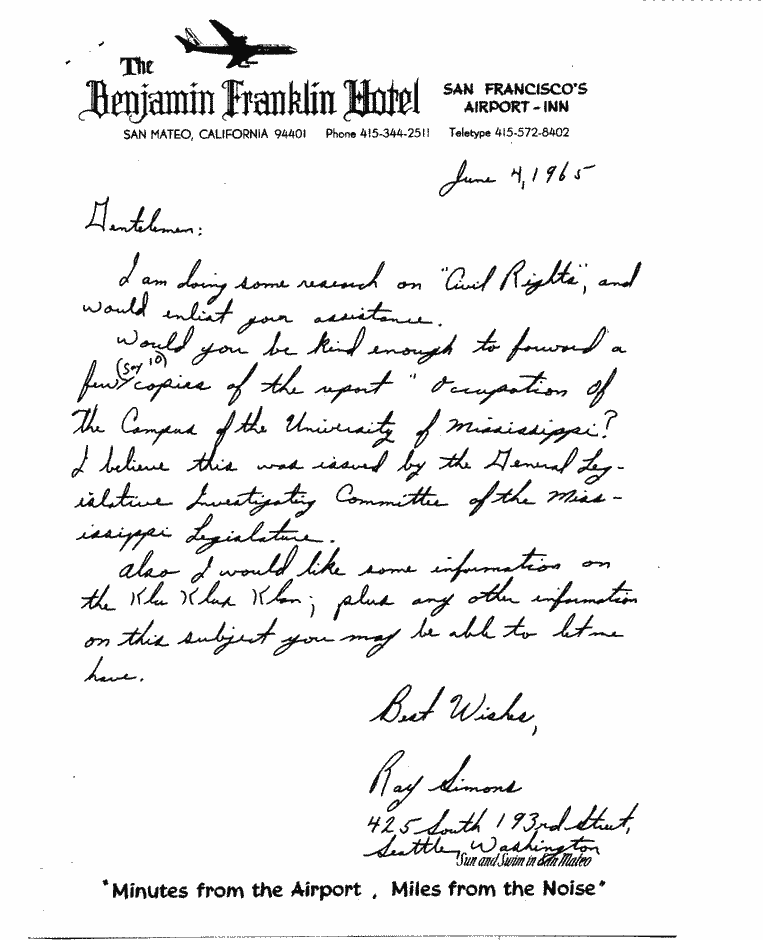 The
Benjamin Franklin Hotel
SAN FRANCISCO'S
AIRPORT - INN
SAN MATEO, CALIFORNIA 94401 Phone 415-344-2511 Teletype 415-572-8402
June 4, 1965
Gentelemen:
I am doing some research on "Civil Rights", and
would enlist your assistance.
Would you be kind enough to forward a
(say 10)
few copies of the report "Occupation of
The Campus of the University of Mississippi?
I believe this was issued by the General Leg-
islative Investigating Committee of the Miss-
issippi Legislature.
Also I would like some information on
the Klu Klux Klan; plus any other information
on this subject you may be able to let me
have.
Best Wishes,
Ray Simons
425 South 193rd Street,
Seattle, Washington
Sun and Swim in San Mateo
"Minutes from the Airport, Miles from the Noise"